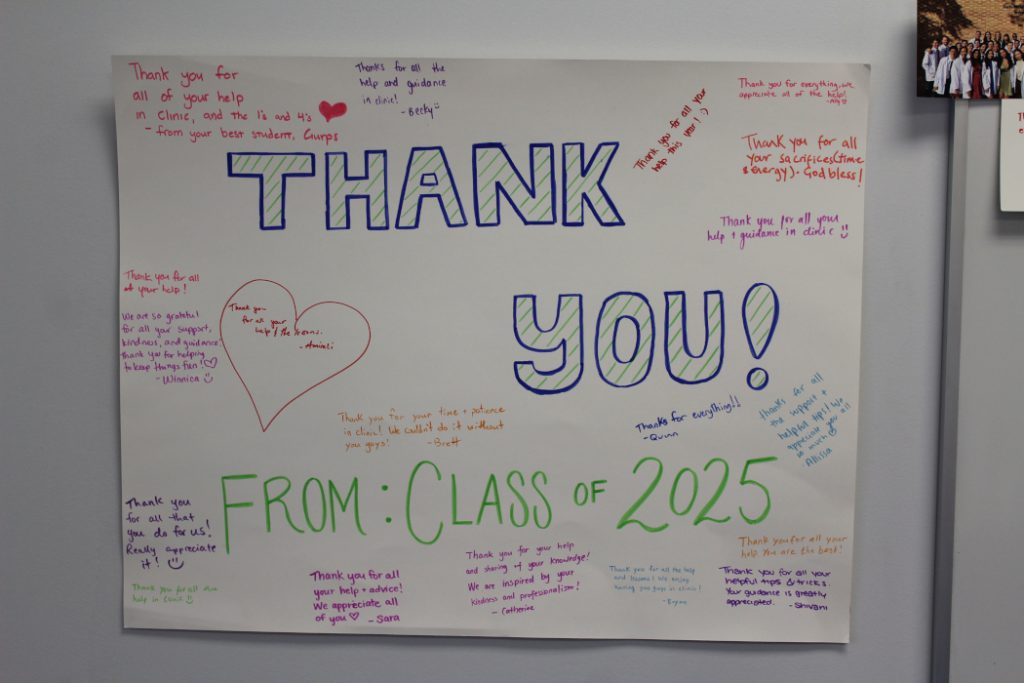 Thank you for
all of your help
in Clinic, and the 1's and 4's
- from your best student, Gurps
Thanks for all the
help and guidance
in clinic!
- Becky
Thank you for all your
help this year! :)
Thank you for everything, we
appreciate all of the help!
Thank you for all
your sacrifices (time
& energy). God bless!
Thank you for all your
help + guidance in clinic
THANK
YOU!
Thank you for all
of your help!
We are so grateful
for all your support,
kindness, and guidance!
thank you for helping
to keep things fun!
- Winnica
Thank you
for all your
help
Thank you for your time + patience
in clinic! We couldn't do it without
you guys! - Brett
Thanks for everything!!
- Quinn
thanks for all
the support +
helpful tips! We
appreciate you all
so much
- Alissa
FROM: CLASS OF 2025
Thank you
for all that
you do for us!
Really appreciate
it!
Thank you for all the
help in clinic
Thank you for all
your help + advice!
We appreciate all
of you - Sara
Thank you for your help
and sharing of your knowledge!
We are inspired by your
kindness and professionalism!
- Catherine
Thank you for all the help
and lessons! We enjoy
having you guys in clinic!
Thank you for all your
help. You are the best!
Thank you for all your
helpful tips & tricks.
Your guidance is greatly
appreciated. - Shivani